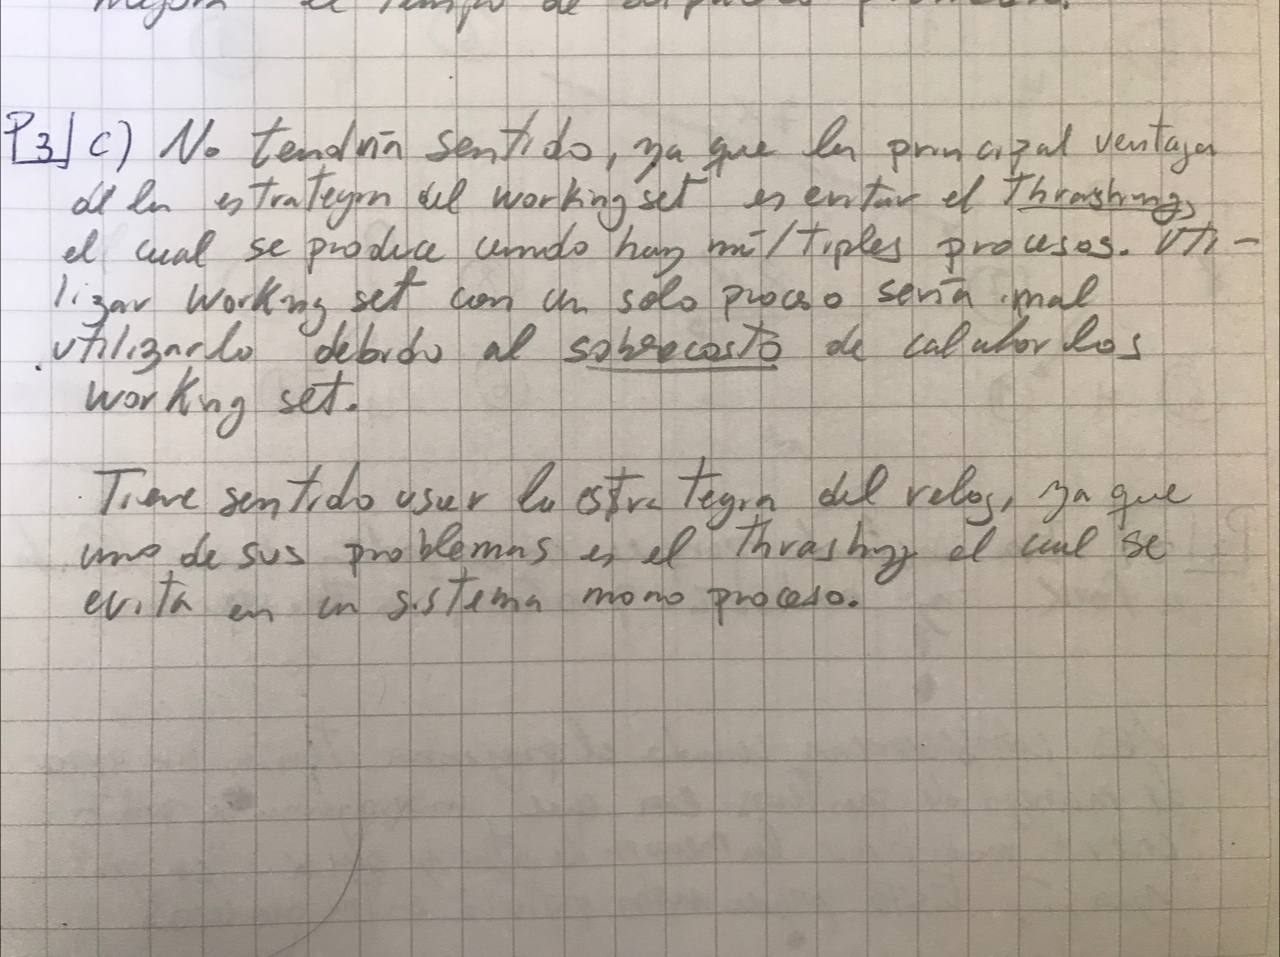 mejora el tiempo de
P3| c) No tendría sentido, ya que la principal ventaja
de la estrategia del working set es evitar el Thrashing,
el cual se produce cuando hay múltiples procesos. Uti-
lizar working set con un solo proceso sería mal
utilizarlo debido al sobrecosto de calcular los
working set.
Tiene sentido usar la estrategia del reloj, ya que
uno de sus problemas es el Thrashing el cual se
evita en un sistema mono proceso.